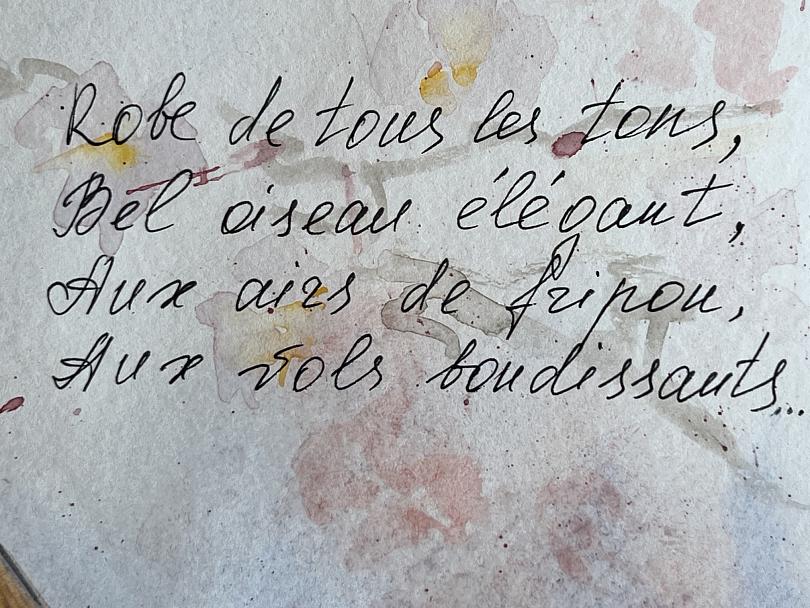 Robe de tous les tons,
Bel oiseau élégant,
Aux airs de fripon,
Aux vols bondissants...